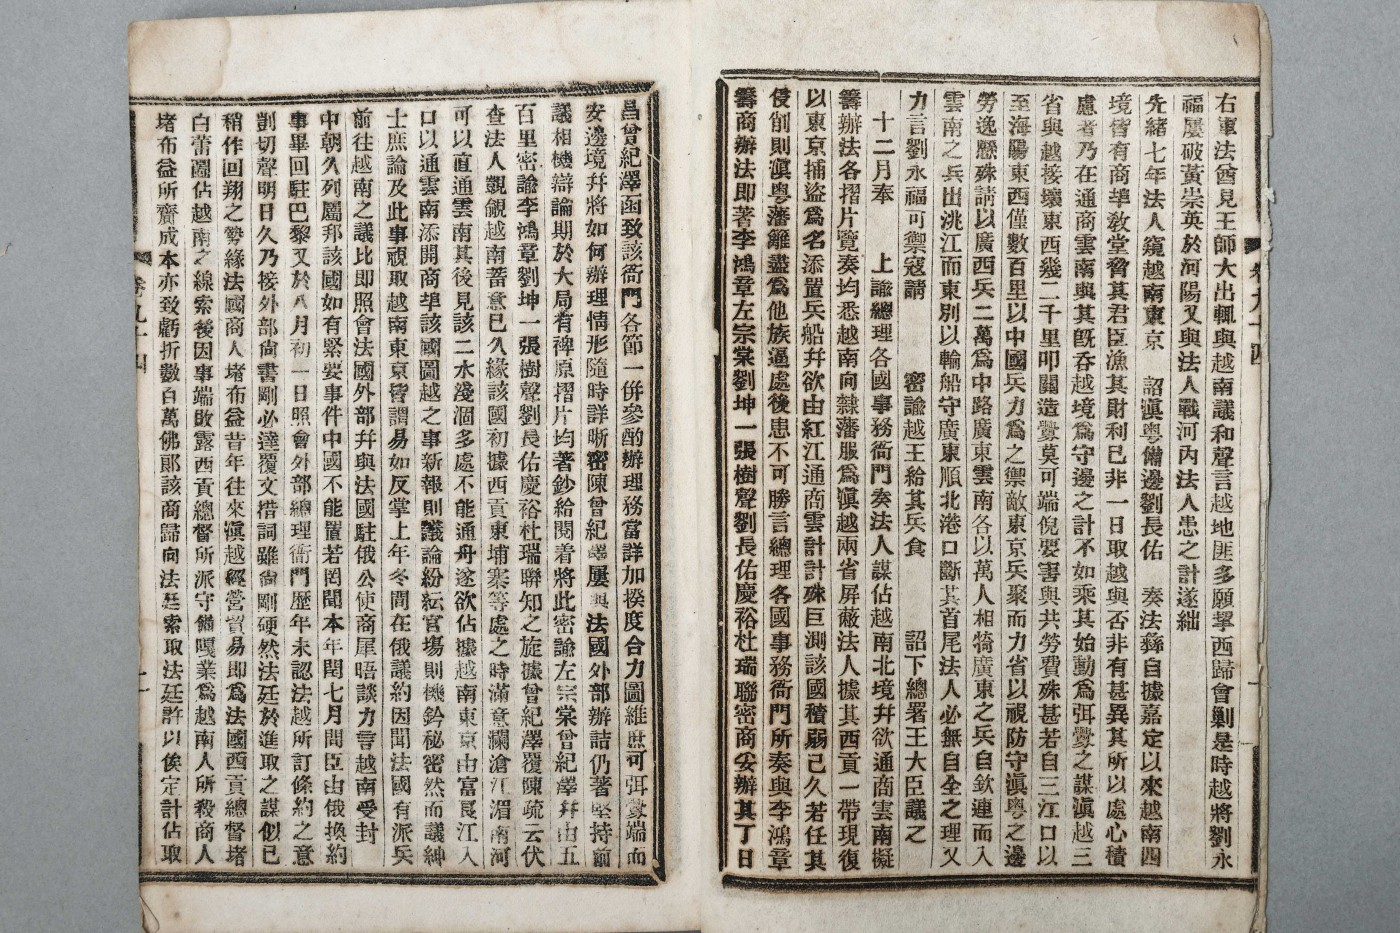 右軍法酋見王師大出輒與越南議和聲言越地匪多願挈西歸會剿是時越將劉永
福屢破黃崇英於河陽又與法人戰河內法人患之計遂絀
先緒七年法人窺越南東京　詔滇粵備邊劉長佑　奏法彝自據嘉定以來越南四
境皆有商埠教堂脅其君臣漁其財利已非一日取越與否非有甚異其所以處心積
慮者乃在通商雲南與其旣吞越境爲守邊之計不如乘其始動爲弭釁之謀滇越三
省與越接壤東西幾二千里叩關造釁莫可端倪要害與共勞費殊甚若自三江口以
至海陽東西僅數百里以中國兵力爲之禦敵東京兵聚而力省以視防守滇粵之邊
勞逸懸殊請以廣西兵二萬爲中路廣東雲南各以萬人相犄廣東之兵自欽連而入
雲南之兵出洮江而東別以輪船守廣東順北港口斷其首尾法人必無自全之理又
力言劉永福可禦寇請　密諭越王給其兵食　詔下總署王大臣議之
十二月奉　上諭總理各國事務衙門奏法人謀佔越南北境幷欲通商雲南擬
籌辦法各摺片覽奏均悉越南向隸藩服爲滇越兩省屏蔽法人據其西貢一帶現復
以東京捕盜爲名添置兵船幷欲由紅江通商雲計計殊巨測該國積弱已久若任其
侵削則滇粵藩籬盡爲他族逼處後患不可勝言總理各國事務衙門所奏與李鴻章
籌商辦法卽著李鴻章左宗棠劉坤一張樹聲劉長佑慶裕杜瑞聯密商妥辦其丁日
昌曾紀澤函致該衙門各節一併參酌辦理務當詳加揆度合力圖維庶可弭釁端而
安邊境幷將如何辦理情形隨時詳晰密陳曾紀澤屢與法國外部辦詰仍著堅持前
議相機辯論期於大局有裨原摺片均著鈔給閱看將此密諭左宗棠曾紀澤幷由五
百里密諭李鴻章劉坤一張樹聲劉長佑慶裕杜瑞聯知之旋據曾紀澤覆陳疏云伏
查法人覬覦越南蓄意已久緣該國初據西貢東埔寨等處之時滿意瀾滄江湄南河
可以直通雲南其後見該二水淺涸多處不能通舟遂欲佔據越南東京由富良江入
口以通雲南添開商埠該國圖越之事新報則議論紛紜官場則機鈐秘密然而議紳
士庶論及此事視取越南東京皆謂易如反掌上年冬間在俄議約因聞法國有派兵
前往越南之議比卽照會法國外部幷與法國駐俄公使商犀晤談力言越南受封
中朝久列屬邦該國如有緊要事件中國不能置若罔聞本年閏七月間臣由俄換約
事畢回駐巴黎又於八月初一日照會外部總理衙門歷年未認法越所訂條約之意
剴切聲明日久乃接外部尙書剛必達覆文措詞雖尙剛硬然法廷於進取之謀似已
稍作回翔之勢緣法國商人堵布益昔年往來滇越經營貿易卽爲法國西貢總督堵
白蕾圖佔越南之線索後因事端敗露西貢總督所派守備嘎業爲越南人所殺商人
堵布益所齎成本亦致虧折數百萬佛郎該商歸向法廷索取法廷許以俟定計佔取
卷九十四